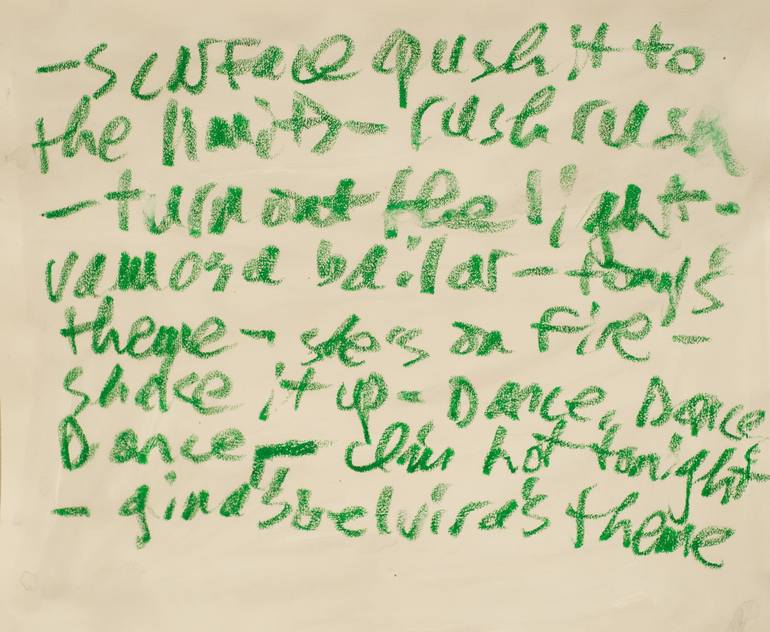 - scarface push it to
the limit - rush rush
- turn out the light.
vamos a bailar - tony's
theme - she's on fire -
shake it up - Dance, Dance
Dance - im hot tonight
- gina's & elvira's theme